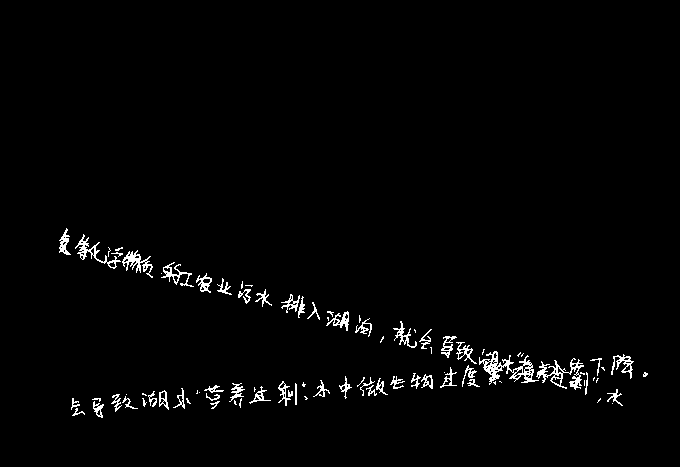 氮等化学物质的工农业污水排入湖泊,就会导致湖水下降。
会导致湖水"营养过剩:水中微生物过度繁殖,水